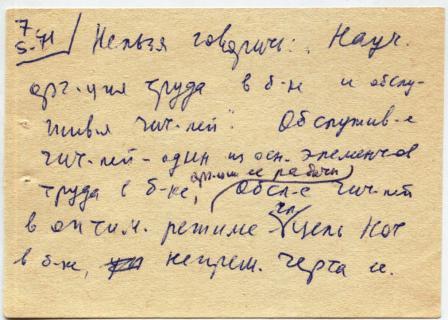 7
5-71
Нельзя говорить: „Науч.
орг-ция труда в б-ке и обслу-
живя чит-лей". Обслужив-е
чит-лей - один из осн. элементов
труда в б-ке, Обсл-е чит-лей
в оптим. режиме - цель НОТ
в б-ке, непрем. черта и.